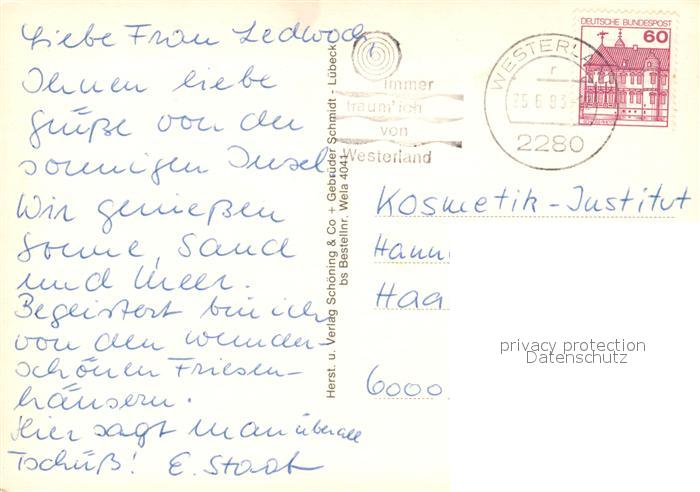 Liebe Frau Ledwoch,
Ihnen liebe
Grüße von der
sonnigen Insel.
Wir genießen
Sonne, Sand
und Meer.
Begeistert bin ich
von den wunder-
schönen Friesen-
häusern.
Hier sagt man überall
Tschüß! E. Staab
Herst. u. Verlag Schöning & Co + Gebrüder Schmidt - Lübeck
bs Bestellnr. Wela 4041
immer
träum' ich
von
Westerland
WESTERLA
25.6.83
2280
DEUTSCHE BUNDESPOST
60
Kosmetik-Institut
Hann
Haa
6000
privacy protection
Datenschutz